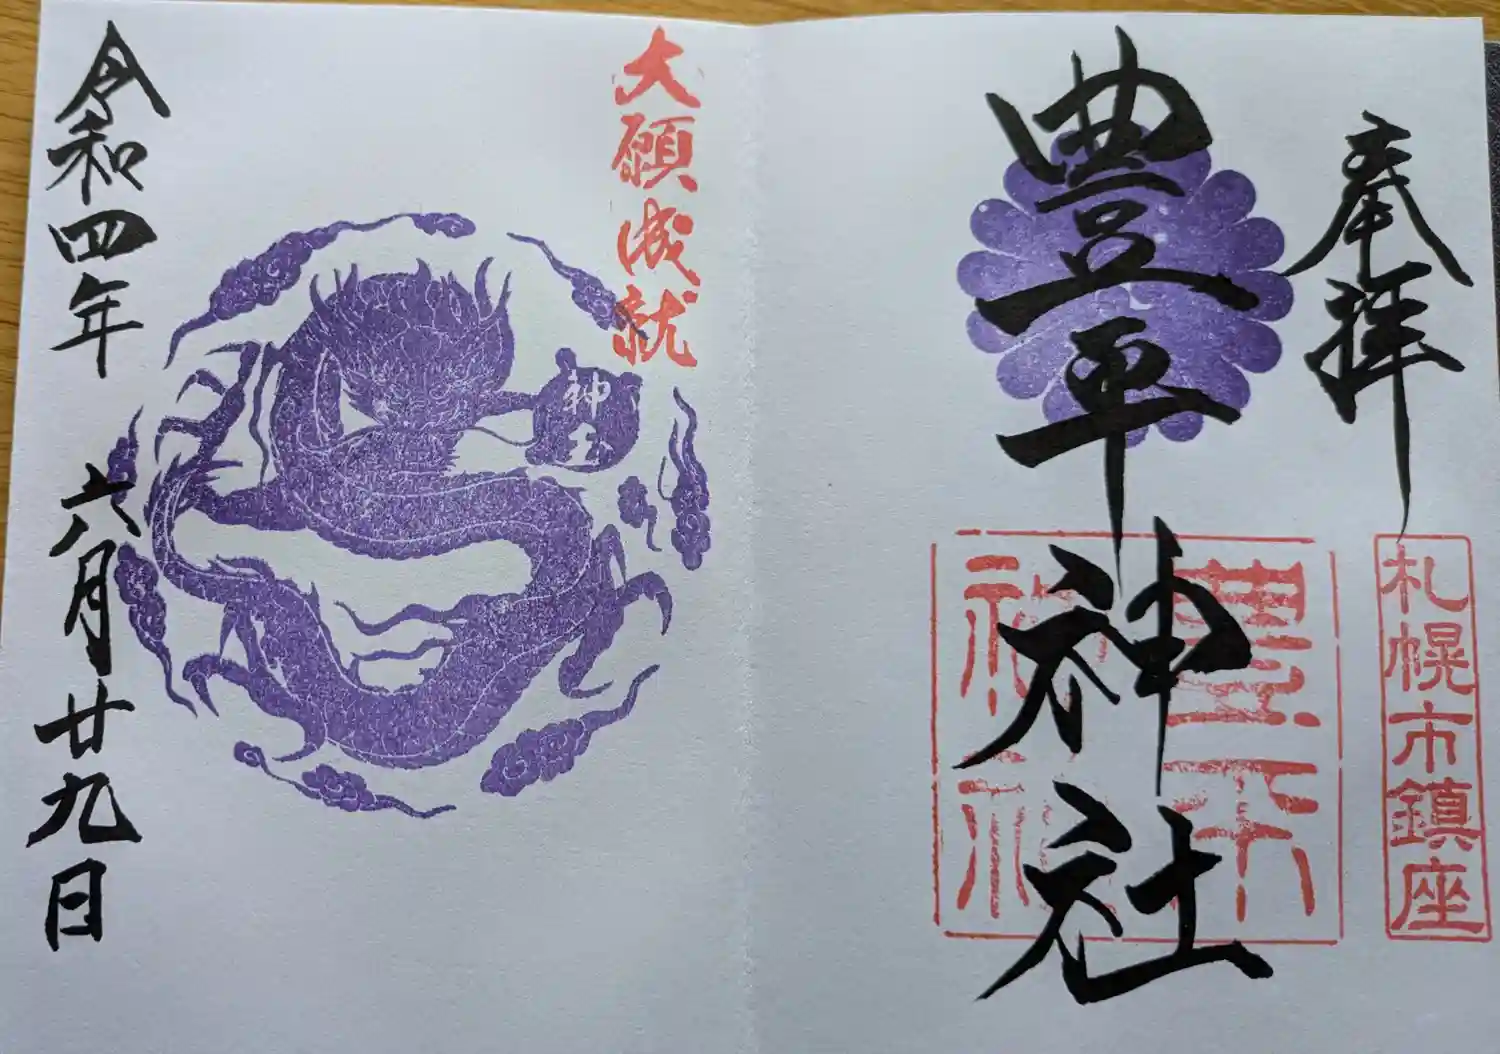 奉拝
札幌市鎮座
豊平神社
豊平神社
大願成就
神玉
令和四年
六月廿九日